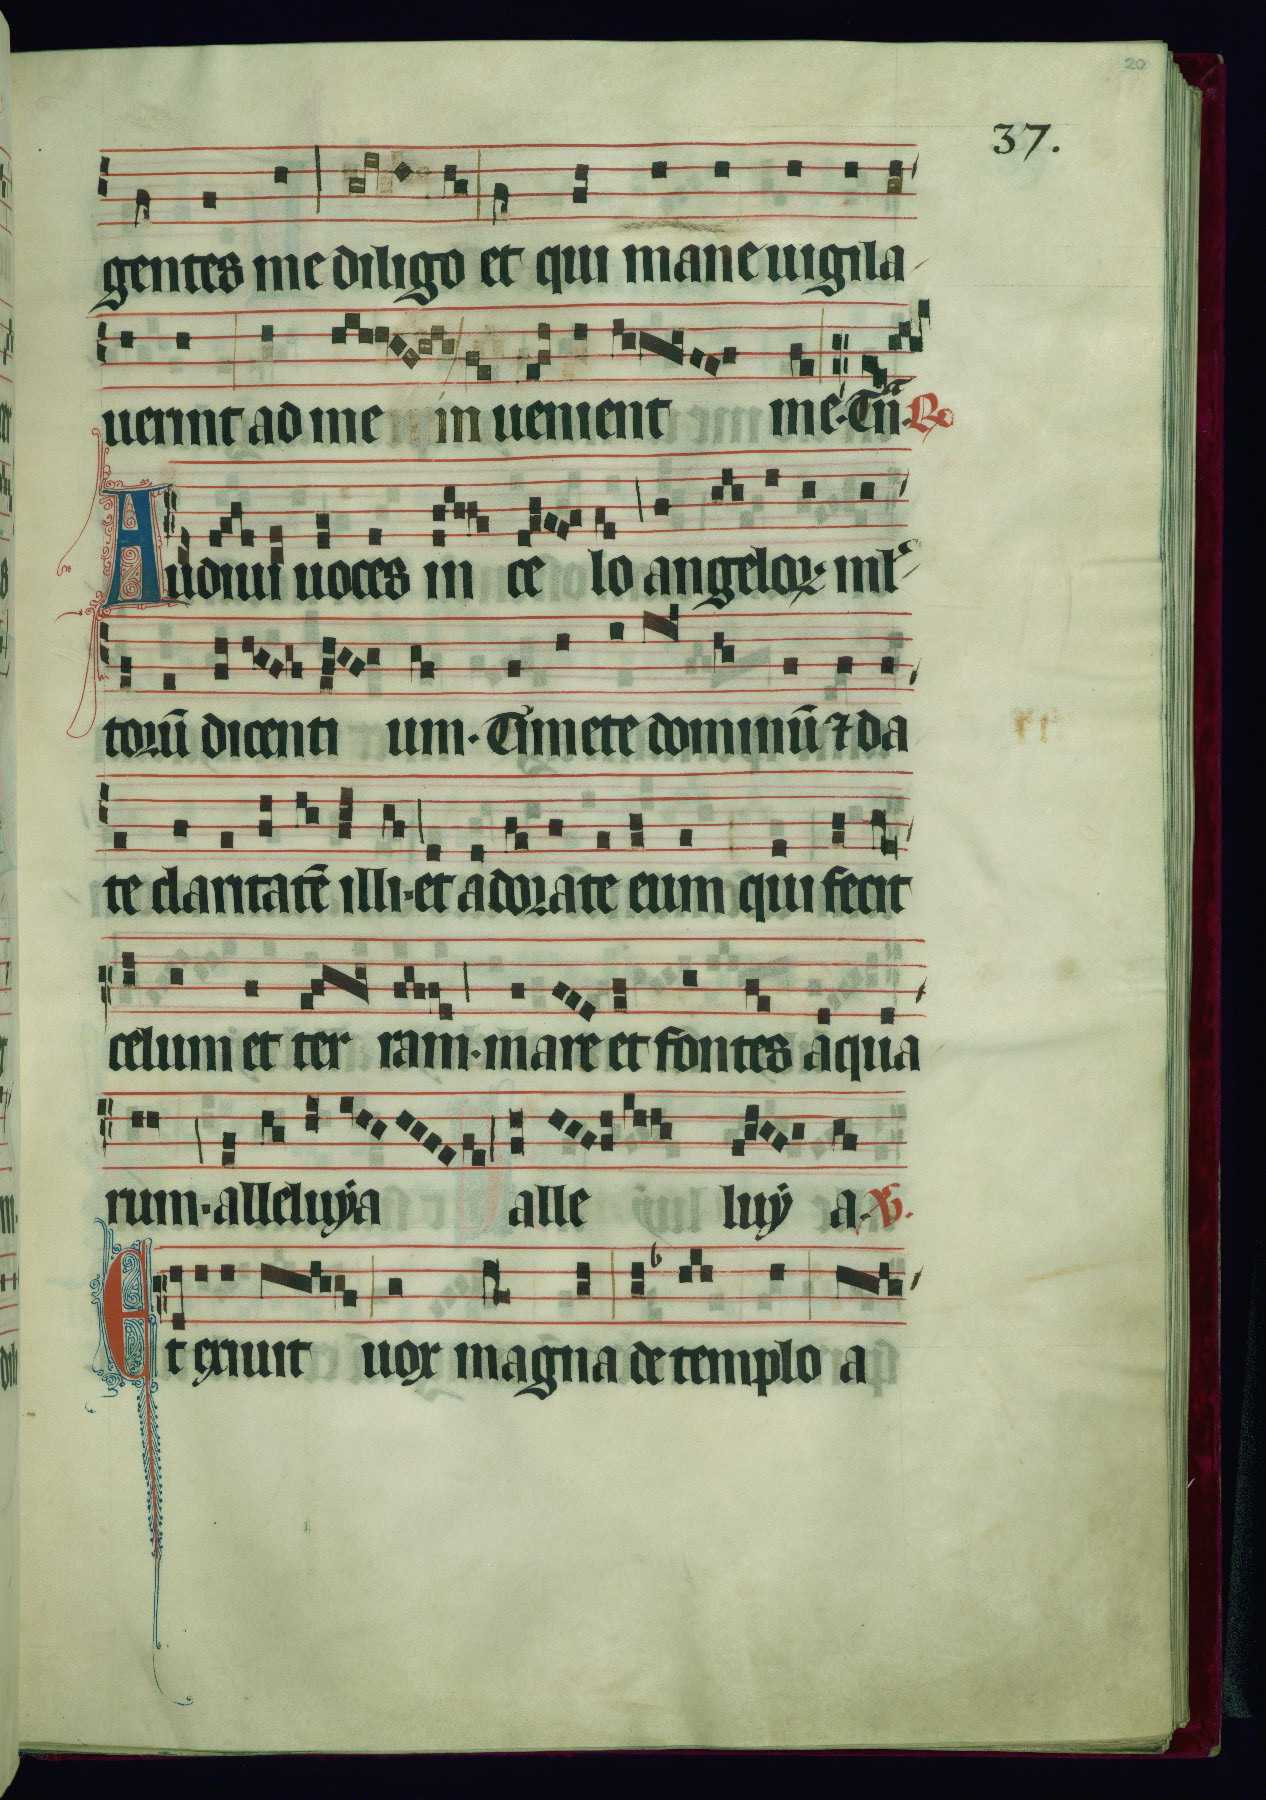 20
37.
gentes me diligo et qui mane uigila
uerint ad me in uenient me. Tūa. ℟
Audiui uoces in ce lo angeloꝝ ml̄
torū dicenti um. Timete dominū ⁊ da
te claritatē illi. et adorate eum qui fecit
celum et ter ram. mare et fontes aqua
rum. alleluÿa alle luÿ a. ℣.
Et exiuit uox magna de templo a